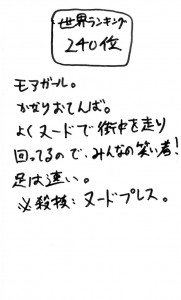 世界ランキング
240位
モアガール。
かなりおてんば。
よくヌードで街中を走り
回ってるので、みんなの笑い者!
足は速い。
※殺技:ヌードプレス。